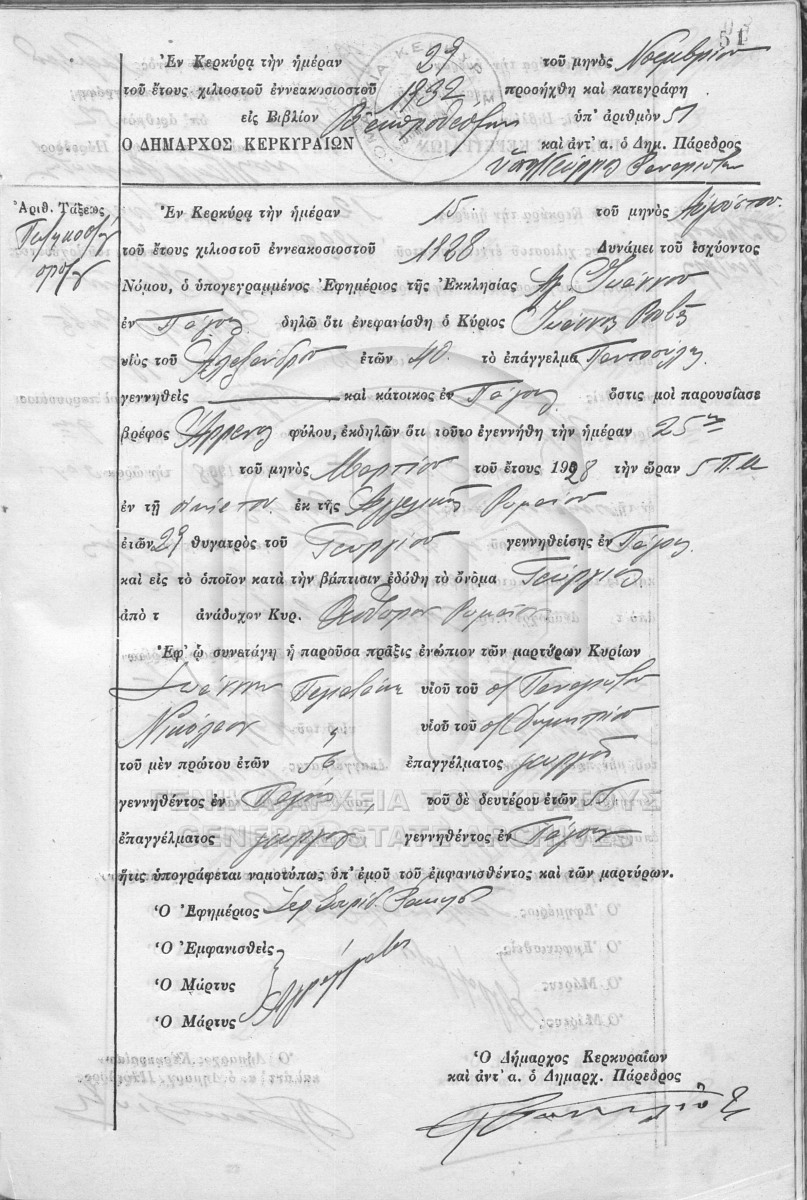 51
Ἐν Κερκύρᾳ τὴν ἡμέραν 29 τοῦ μηνὸς Νοεμβρίου
τοῦ ἔτους χιλιοστοῦ ἐννεακοσιοστοῦ 1932 προσήχθη καὶ κατεγράφη
εἰς Βιβλίον ὑπ' ἀριθμὸν 51
Ο ΔΗΜΑΡΧΟΣ ΚΕΡΚΥΡΑΙΩΝ καὶ ἀντ' α. ὁ Δημ. Πάρεδρος
Ἀριθ. Τάξεως
Ἐν Κερκύρᾳ τὴν ἡμέραν 15 τοῦ μηνὸς Αὐγούστου
τοῦ ἔτους χιλιοστοῦ ἐννεακοσιοστοῦ 1928 Δυνάμει τοῦ ἰσχύοντος
Νόμου, ὁ ὑπογεγραμμένος Ἐφημέριος τῆς Ἐκκλησίας Ἁγ. Ἰωάννου
ἐν Πάγους δηλῶ ὅτι ἐνεφανίσθη ὁ Κύριος Ἰωάννης
υἱὸς τοῦ Ἀλεξάνδρου ἐτῶν 40 τὸ ἐπάγγελμα Παντοπώλης
γεννηθεὶς καὶ κάτοικος ἐν Πάγους ὅστις μοὶ παρουσίασε
βρέφος Ἄρρεν φύλου, ἐκδηλῶν ὅτι τοῦτο ἐγεννήθη τὴν ἡμέραν 25ην
τοῦ μηνὸς Μαρτίου τοῦ ἔτους 1928 τὴν ὥραν 5 π.μ
ἐν τῇ οἰκίᾳ του ἐκ τῆς Ἀγγελικῆς Ρωμαίου
ἐτῶν 29 θυγατρὸς τοῦ Γεωργίου γεννηθείσης ἐν Πάγους
καὶ εἰς τὸ ὁποῖον κατὰ τὴν βάπτισιν ἐδόθη τὸ ὄνομα Γεώργιος
ἀπὸ τ ἀνάδοχον Κυρ. Θεόδωρον Ρωμαῖον
Ἐφ' ᾧ συνετάγη ἡ παροῦσα πρᾶξις ἐνώπιον τῶν μαρτύρων Κυρίων
Ἰωάννου υἱοῦ τοῦ Παναγιώτου
Νικόλαον υἱοῦ τοῦ Δημητρίου
τοῦ μὲν πρώτου ἐτῶν 56 ἐπαγγέλματος γεωργὸς
γεννηθέντος ἐν Πάγους τοῦ δὲ δευτέρου ἐτῶν
ἐπαγγέλματος γεωργὸς γεννηθέντος ἐν Πάγους
ἥτις ὑπογράφεται νομοτύπως ὑπ' ἐμοῦ τοῦ ἐμφανισθέντος καὶ τῶν μαρτύρων.
Ὁ Ἐφημέριος Ἱερ Σπυρίδ.
Ὁ Ἐμφανισθεὶς
Ὁ Μάρτυς Ἀγράμματοι
Ὁ Μάρτυς
Ὁ Δήμαρχος Κερκυραίων
καὶ ἀντ' α. ὁ Δημαρχ. Πάρεδρος
ΓΕΝΙΚΑ ΑΡΧΕΙΑ ΤΟΥ ΚΡΑΤΟΥΣ
GENERAL STATE ARCHIVES